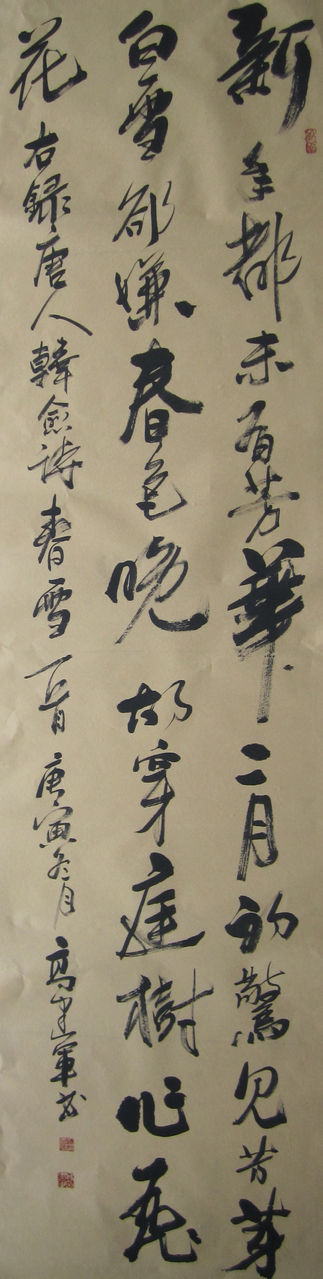 新年都未有芳華二月初驚見草芽
白雪卻嫌春色晚故穿庭樹作飛
花右錄唐人韓愈詩春雪一首庚寅冬月高建軍書